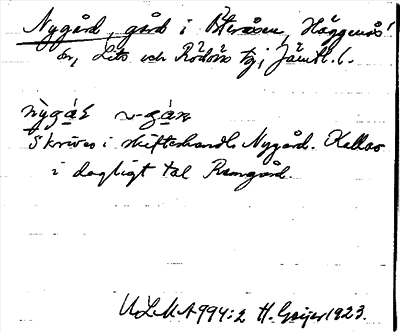 Nygård, gård i Återåsen, Häggenås
sn, Lits och Rödöns tg, Jämtl. l.
nỳgáɽ ~-gán
Skrives i skifteshandl. Nygård. Kallas
i dagligt tal Ramgård.
ULMA 994:2 H. Geijer 1923.